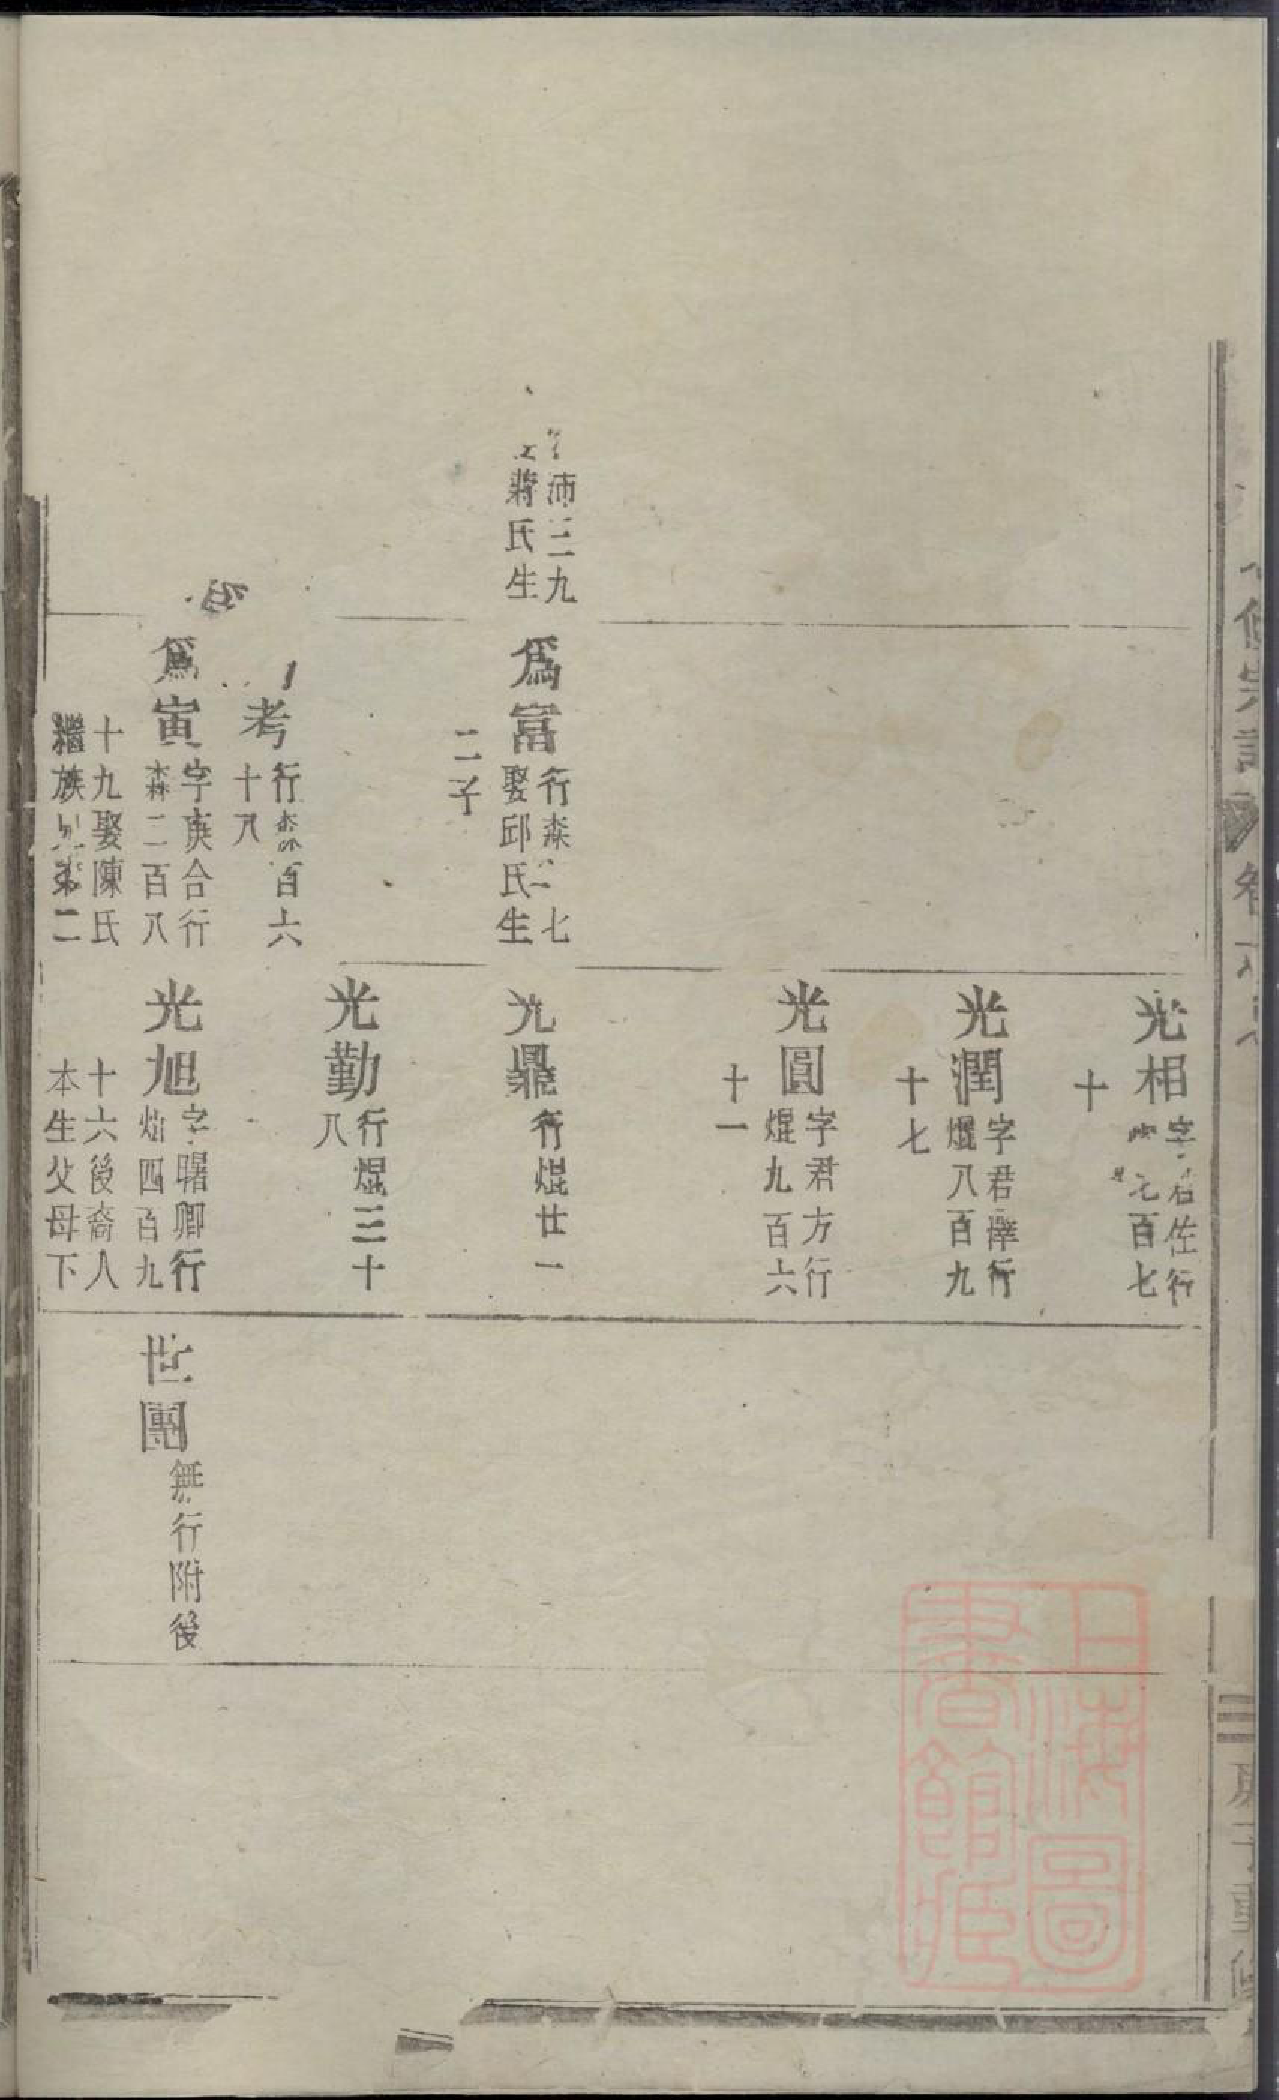 沛三九
蔣氏生
爲富
行森 七
娶邱氏生
二子
考
行森百六
十八
爲寅
字庚合行
森二百八
十九娶陳氏
繼族 第二
光相
字君佐行
七百七
十
光潤
字君澤行
焜八百九
十七
光圓
字君方行
焜九百六
十一
光鼎
行焜廿一
光勤
行焜三十
八
光旭
字曙卿行
四百九
十六後裔人
本生父母下
世團
無行附後
修宗譜
卷
重修
上海圖
書館藏